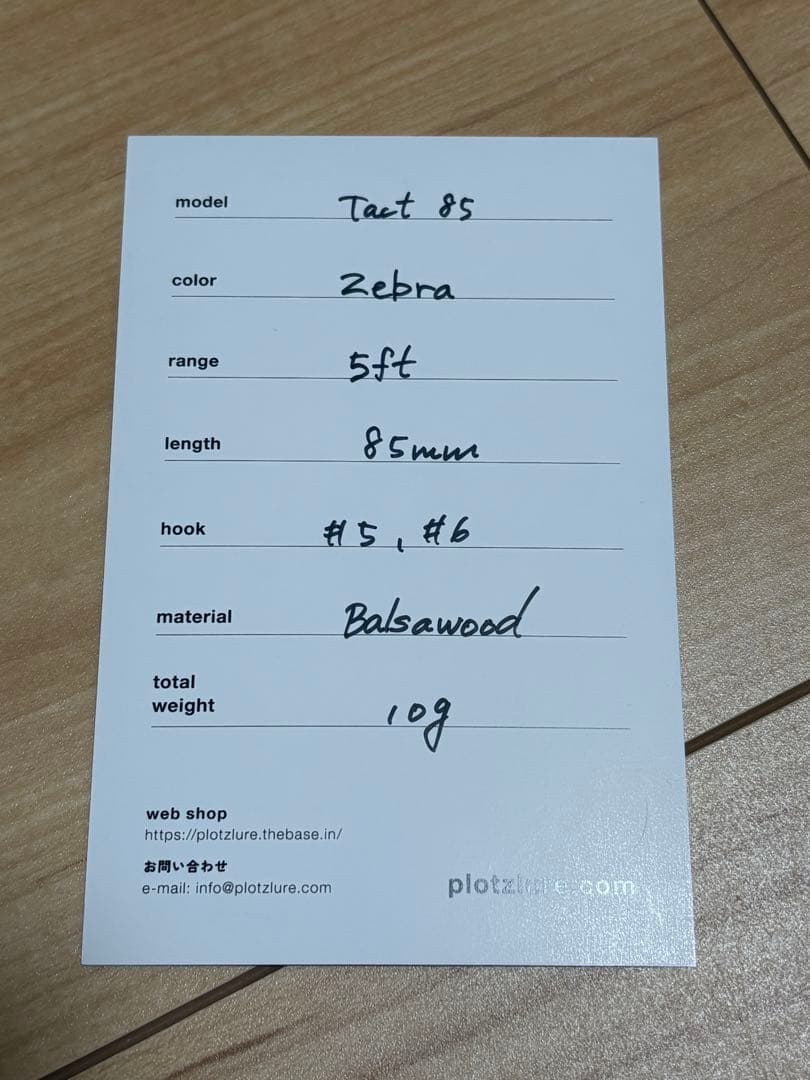 model Tact 85
color Zebra
range 5ft
length 85mm
hook #5, #6
material Balsawood
total
weight 10g
web shop
https://plotzlure.thebase.in/
お問い合わせ
e-mail: info@plotzlure.com
plotzlure.com